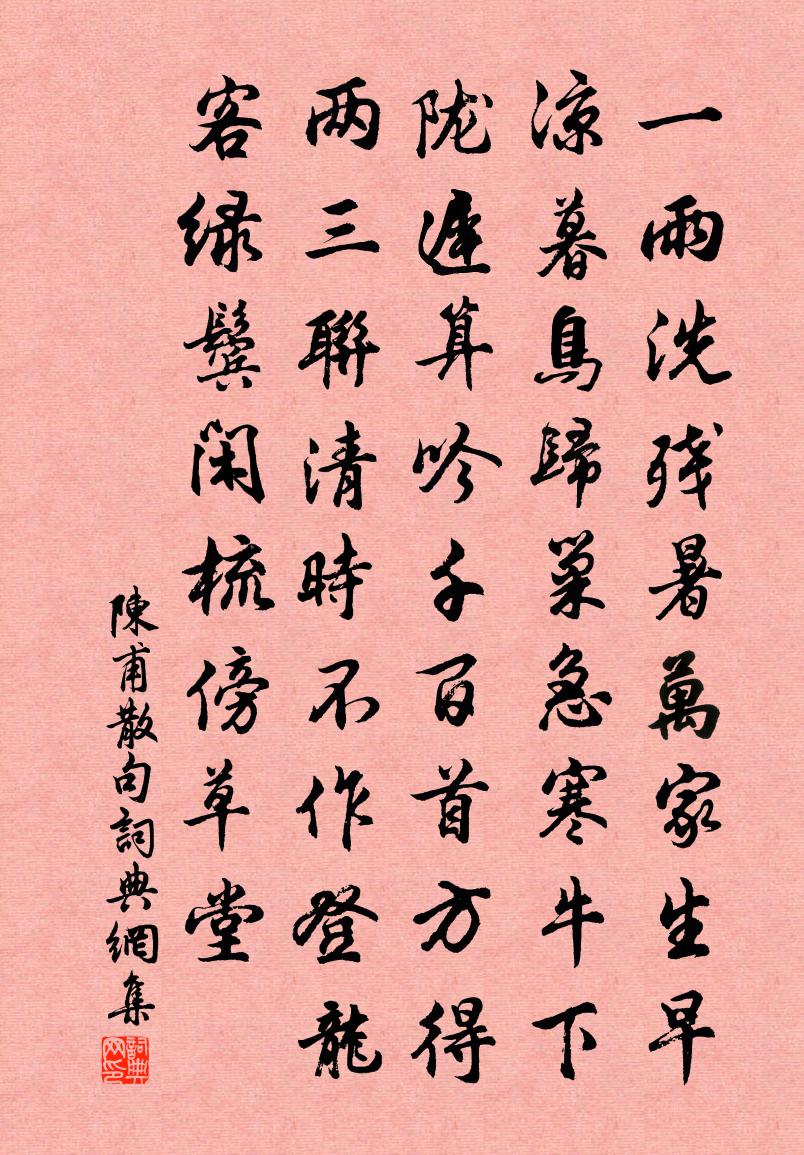 一雨洗残暑萬家生早
凉暮鳥歸巢急寒牛下
陇遲算吟千百首方得
两三聯清時不作登龍
客绿鬓闲梳傍草堂
陳甫散句詞典網集
詞典网印